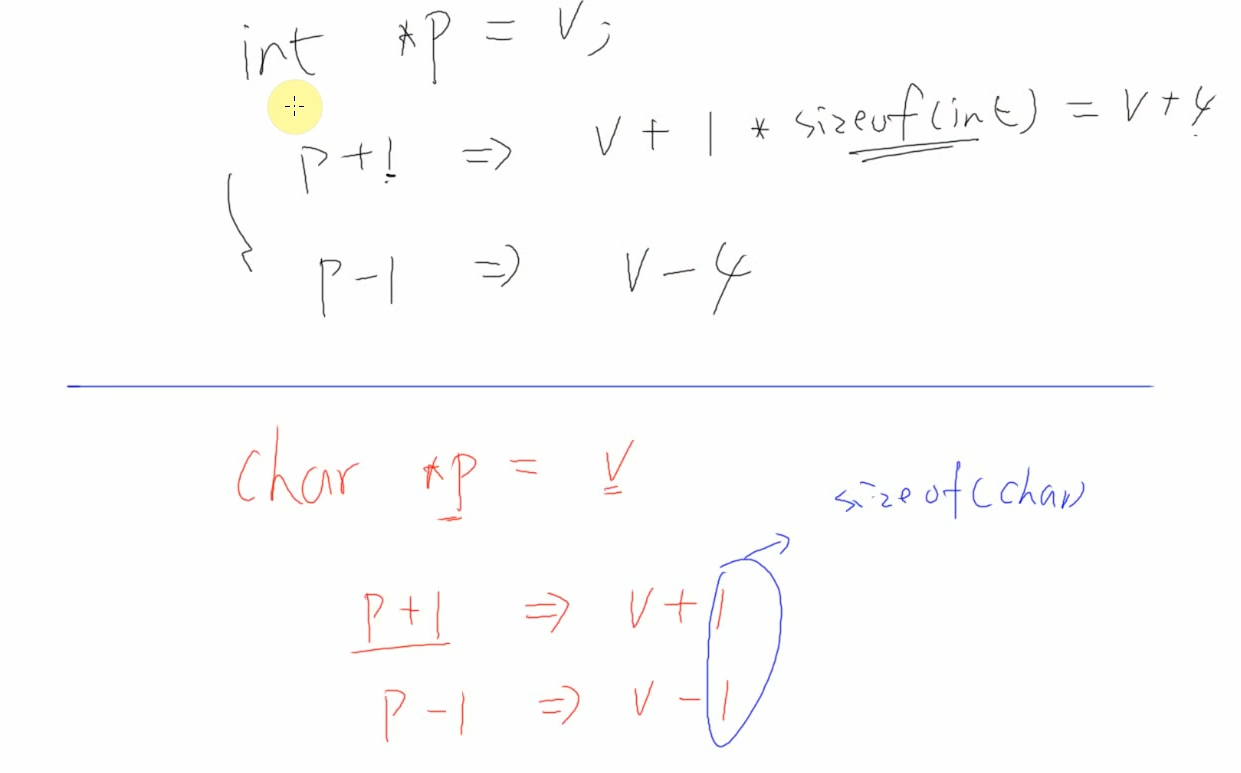 int *p = v;
p+1 => v + 1 * sizeof(int) = v + 4
p-1 => v - 4
char *p = v
sizeof(char)
p+1 => v + 1
p-1 => v - 1